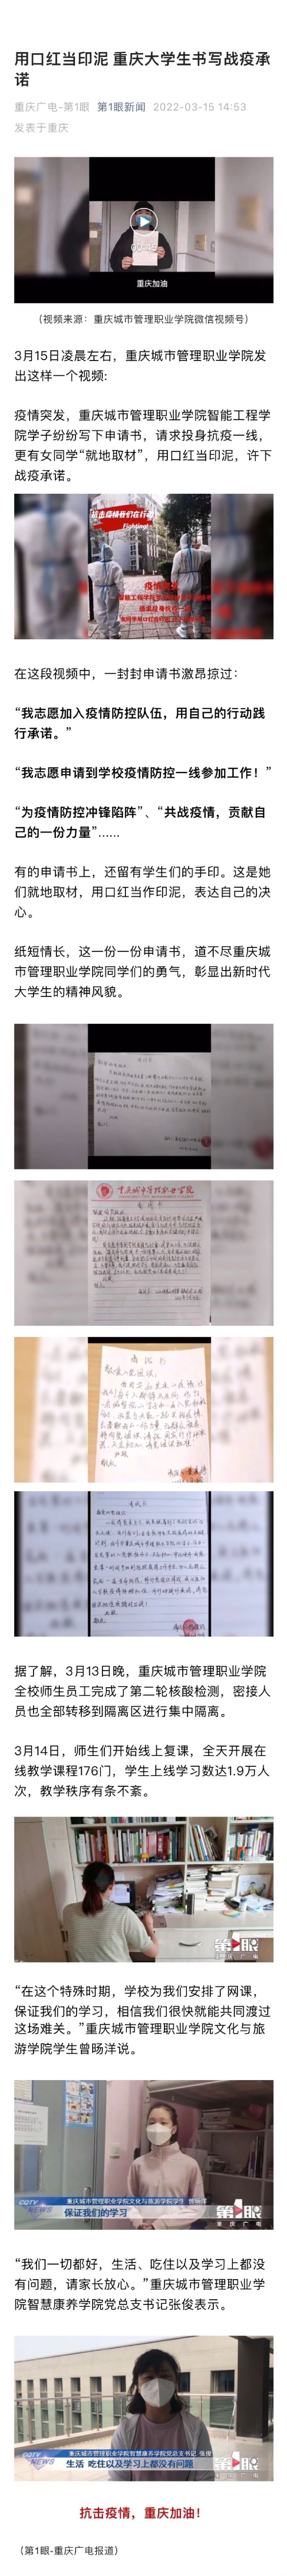 用口红当印泥 重庆大学生书写战疫承
诺
重庆广电-第1眼 第1眼新闻 2022-03-15 14:53
发表于重庆
重庆加油
（视频来源：重庆城市管理职业学院微信视频号）
3月15日凌晨左右，重庆城市管理职业学院发
出这样一个视频:
疫情突发，重庆城市管理职业学院智能工程学
院学子纷纷写下申请书，请求投身抗疫一线，
更有女同学“就地取材”，用口红当印泥，许下
战疫承诺。
阻击疫情我们在行动
Fighting!
在这段视频中，一封封申请书激昂掠过：
“我志愿加入疫情防控队伍，用自己的行动践
行承诺。”
“我志愿申请到学校疫情防控一线参加工作！”
“为疫情防控冲锋陷阵”、“共战疫情，贡献自
己的一份力量”……
有的申请书上，还留有学生们的手印。这是她
们就地取材，用口红当作印泥，表达自己的决
心。
纸短情长，这一份一份申请书，道不尽重庆城
市管理职业学院同学们的勇气，彰显出新时代
大学生的精神风貌。
重庆城市管理职业学院
申请书
据了解，3月13日晚，重庆城市管理职业学院
全校师生员工完成了第二轮核酸检测，密接人
员也全部转移到隔离区进行集中隔离。
3月14日，师生们开始线上复课，全天开展在
线教学课程176门，学生上线学习数达1.9万人
次，教学秩序有条不紊。
第1眼
重庆广电
“在这个特殊时期，学校为我们安排了网课，
保证我们的学习，相信我们很快就能共同渡过
这场难关。”重庆城市管理职业学院文化与旅
游学院学生曾旸洋说。
CQTV
NEWS
重庆城市管理职业学院文化与旅游学院学生 曾旸洋
保证我们的学习
第1眼
重庆广电
“我们一切都好，生活、吃住以及学习上都没
有问题，请家长放心。”重庆城市管理职业学
院智慧康养学院党总支书记张俊表示。
CQTV
NEWS
重庆城市管理职业学院智慧康养学院党总支书记 张俊
生活 吃住以及学习上都没有问题
第1眼
重庆广电
抗击疫情，重庆加油！
（第1眼-重庆广电报道）